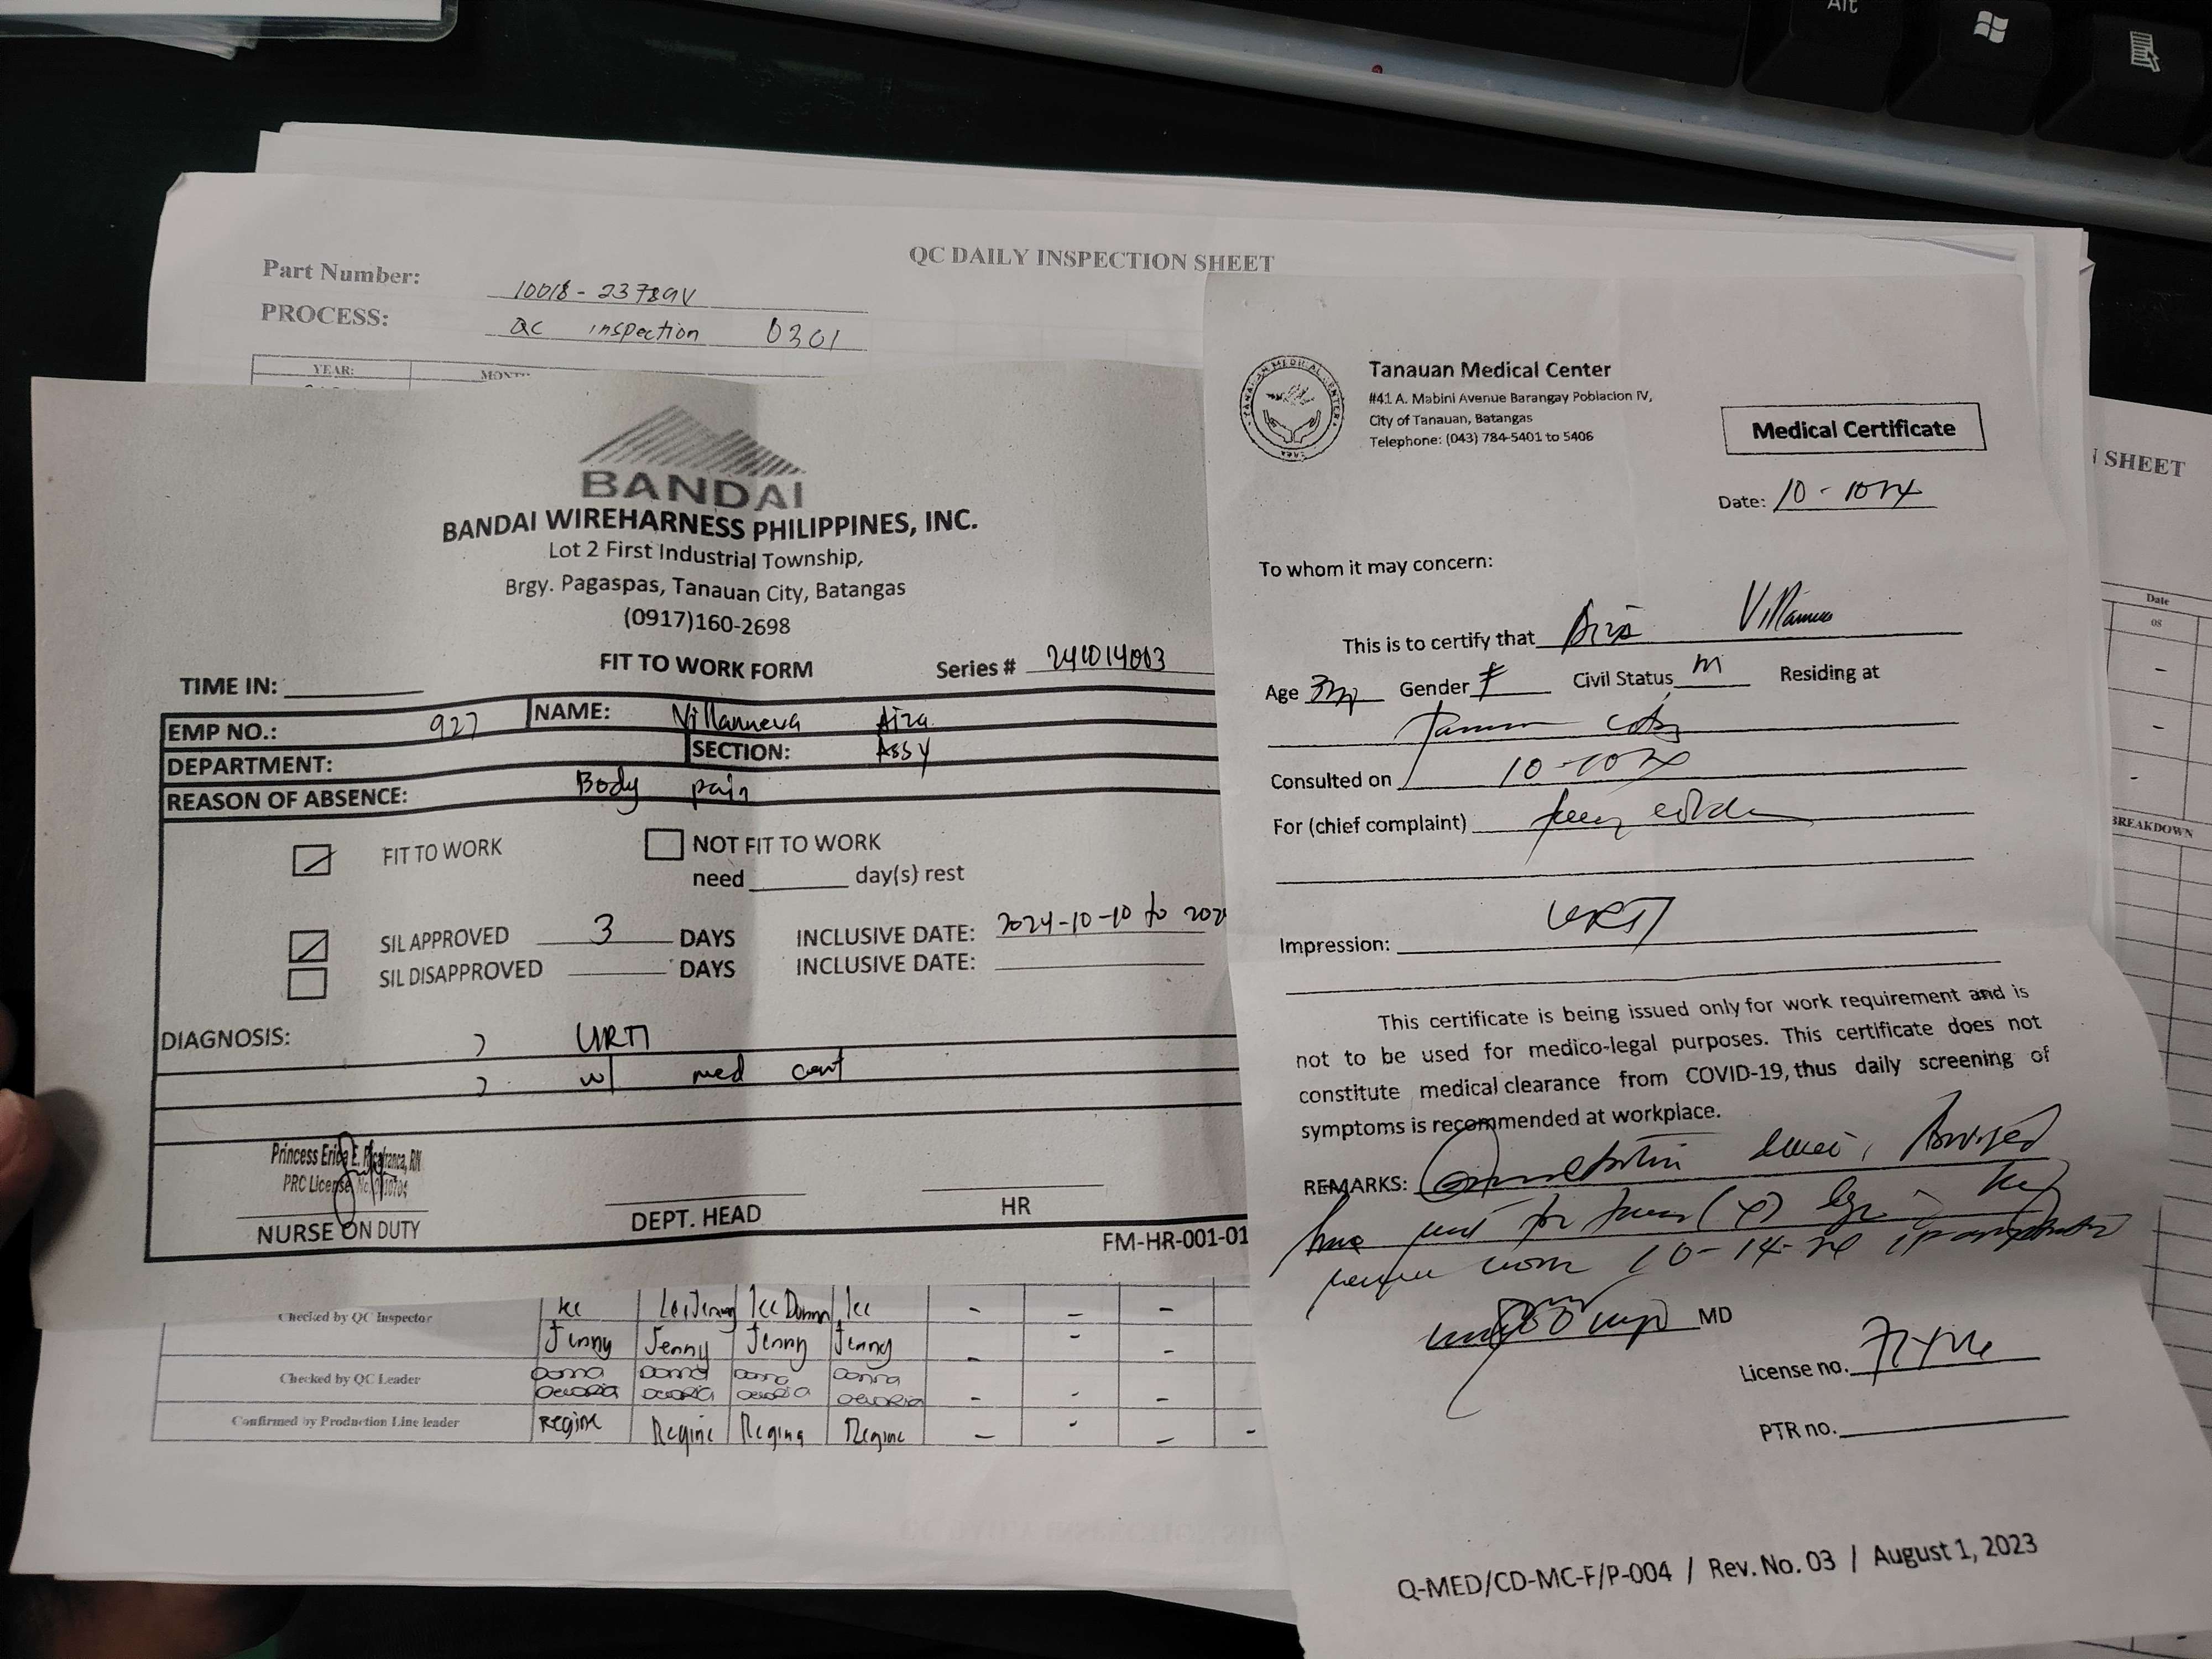 Alt
QC DAILY INSPECTION SHEET
Part Number: 10018-23789V
PROCESS: QC inspection 0301
YEAR:
SHEET
Date
08
BREAKDOWN
BANDAI
BANDAI WIREHARNESS PHILIPPINES, INC.
Lot 2 First Industrial Township,
Brgy. Pagaspas, Tanauan City, Batangas
(0917)160-2698
FIT TO WORK FORM Series # 241014003
TIME IN:
EMP NO.: 927 NAME: Villanueva Aiza
DEPARTMENT: SECTION: Assy
REASON OF ABSENCE: Body pain
FIT TO WORK NOT FIT TO WORK
need day(s) rest
SIL APPROVED 3 DAYS INCLUSIVE DATE: 2024-10-10 to
SIL DISAPPROVED DAYS INCLUSIVE DATE:
DIAGNOSIS: URTI
w/ med cert
Princess
PRC License
NURSE ON DUTY DEPT. HEAD HR
FM-HR-001-01
Checked by QC Inspector
Jenny Jenny Jenny Jenny
Checked by QC Leader
Donna Donna Donna Donna
Confirmed by Production Line leader Regine Regine Regine Regine
Tanauan Medical Center
#41 A. Mabini Avenue Barangay Poblacion IV,
City of Tanauan, Batangas
Telephone: (043) 784-5401 to 5406
Medical Certificate
Date:
To whom it may concern:
This is to certify that
Age Gender F Civil Status M Residing at
Consulted on
For (chief complaint)
Impression: URTI
This certificate is being issued only for work requirement and is
not to be used for medico-legal purposes. This certificate does not
constitute medical clearance from COVID-19, thus daily screening of
symptoms is recommended at workplace.
REMARKS:
MD
License no.
PTR no.
Q-MED/CD-MC-F/P-004 / Rev. No. 03 / August 1, 2023